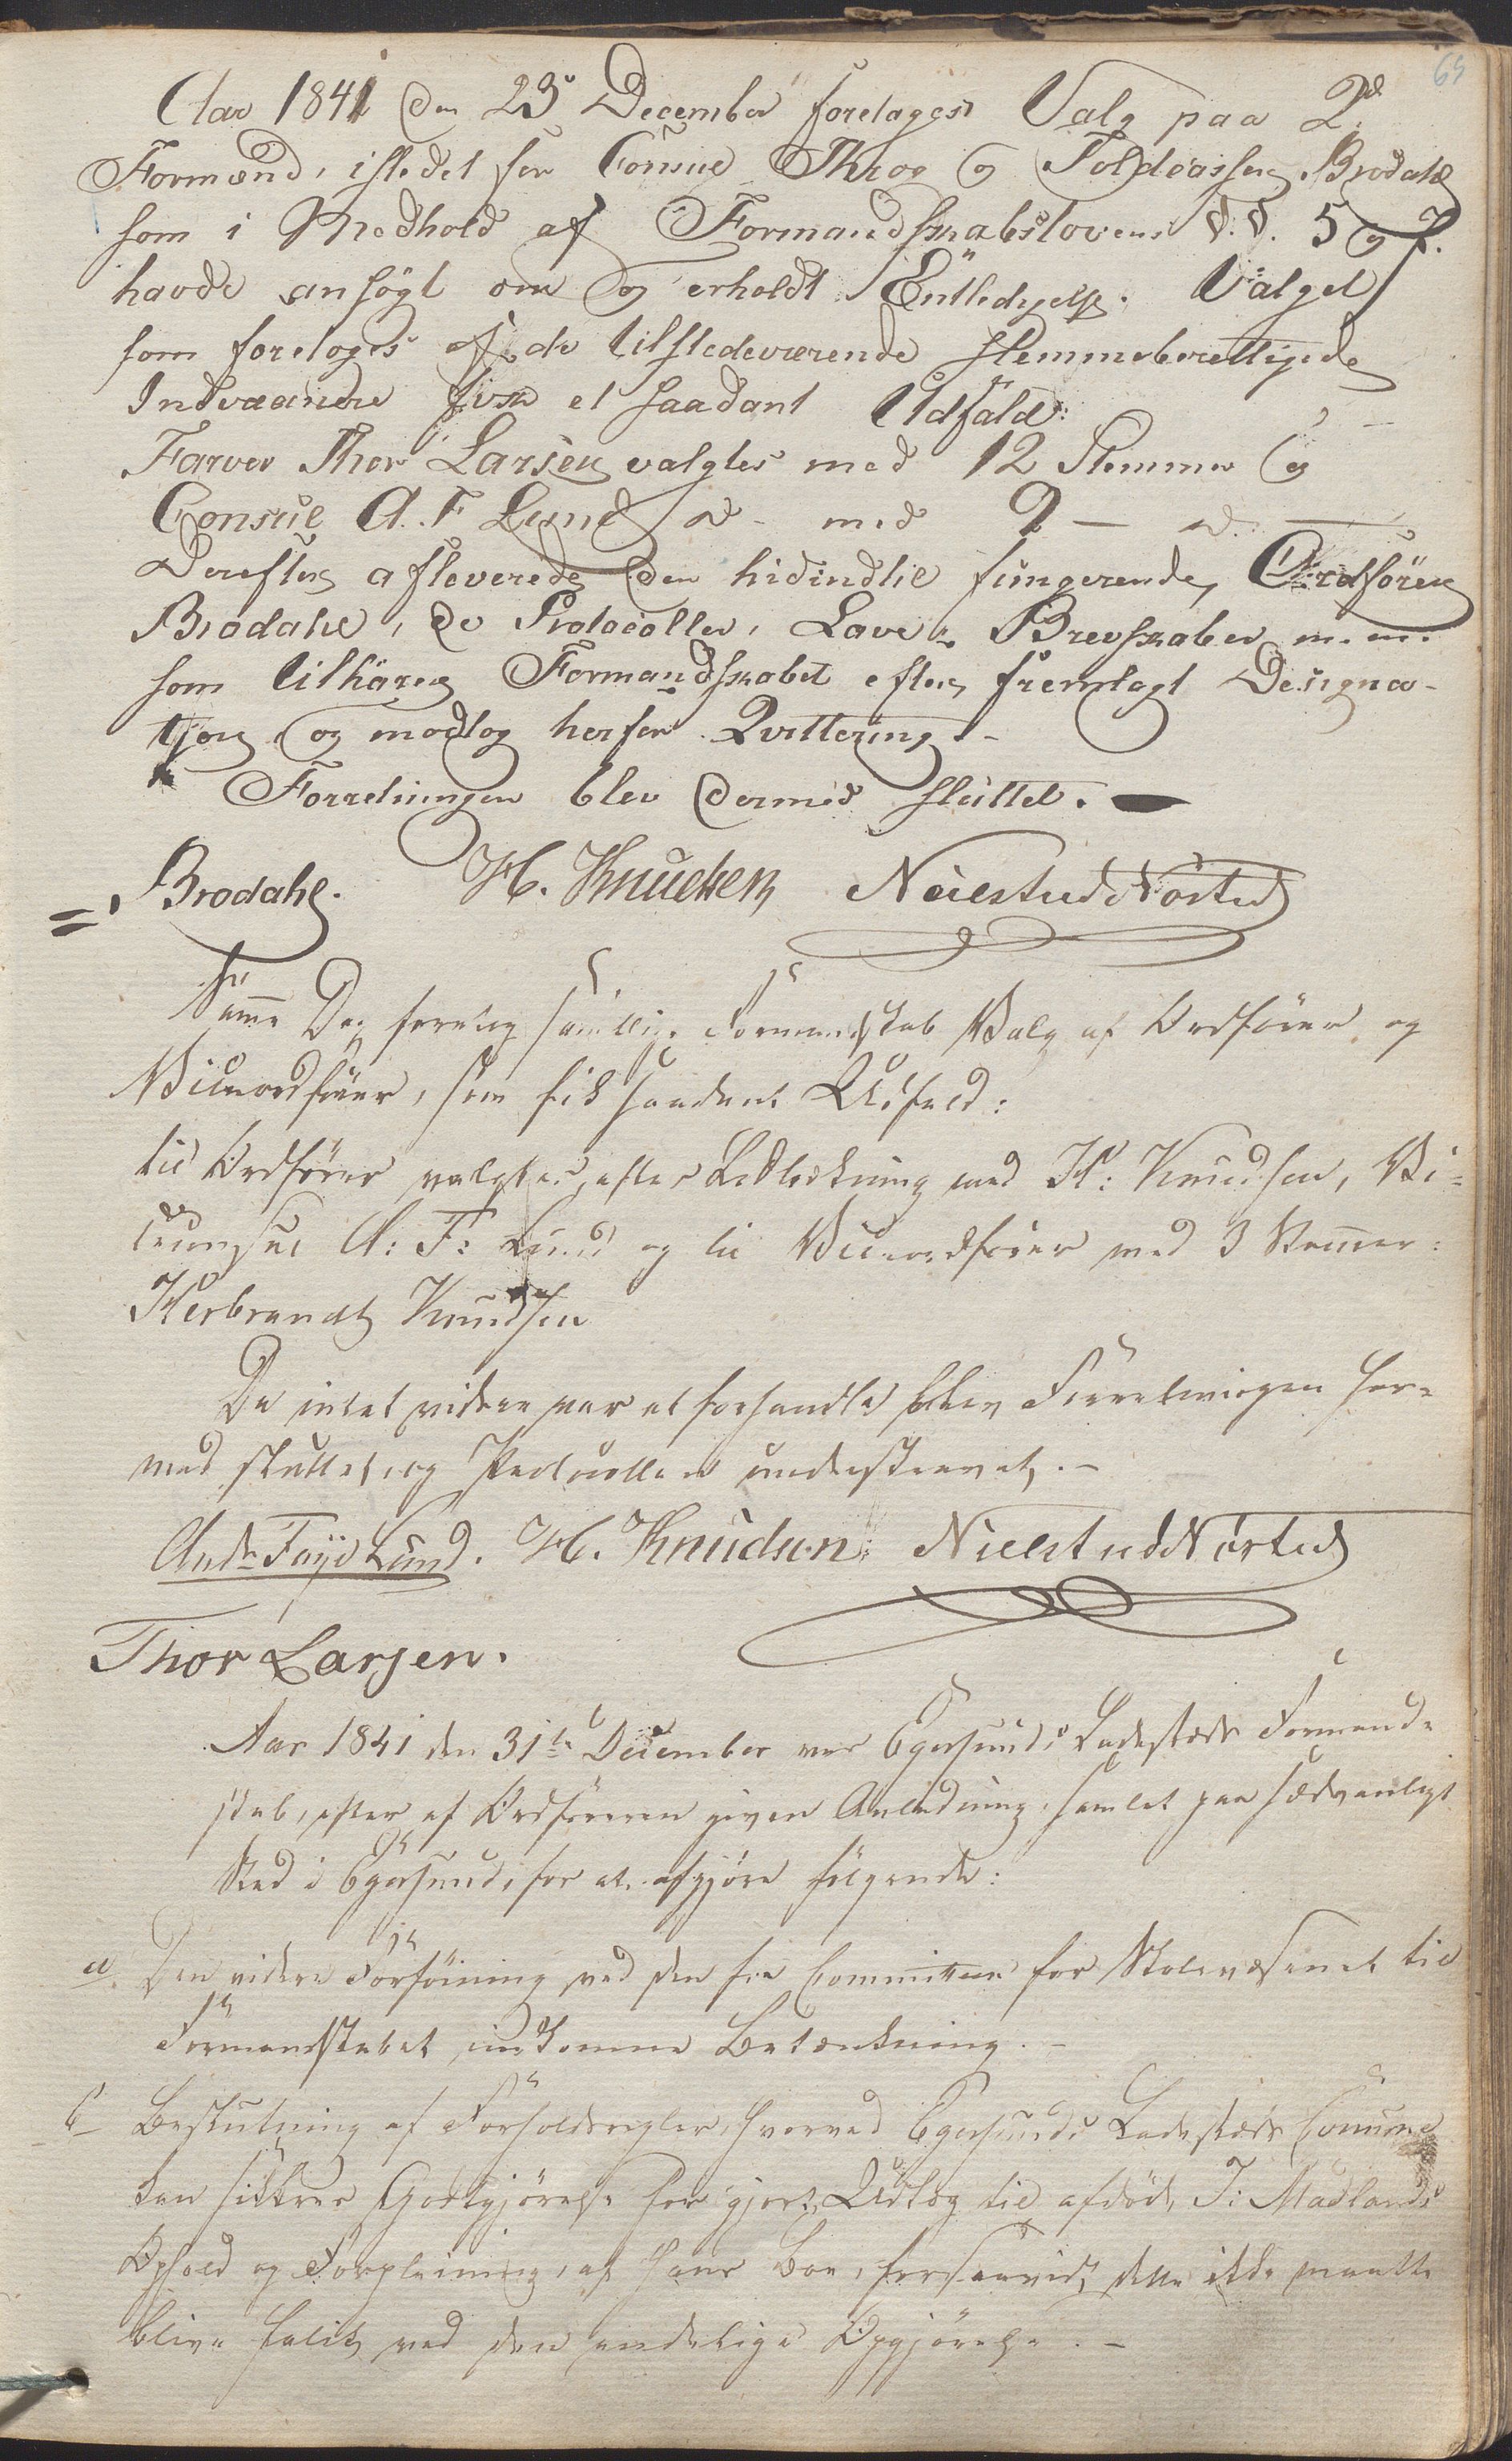 65
Aar 1841 den 23de December foretoges Valg paa 2de
Formænd, istedet for Consul Krog og Toldcasserer Brodahl
som i Medhold af Formandskabslovens §.§. 5 og 7.
havde ansøgt om og erholdt Entledigelse. Valget
som foretoges af de tilstedeværende Stemmeberettigede
Indvaanere fik et saadant Udfald:
Farver Thor Larsen valgtes med 12 Stemmer og
Consul A. F Lund do - med 9 — do. —
Derefter afleverede den hidindtil fungerende Ordfører
Brodahl, de Protocoller, Love, Brevskaber m. m.
som tilhører Formandskabet efter fremlagt Designa-
tjon og modtog herfor Qvittering. -
Forretningen blev dermed sluttet. —
Brodahl. H. Knudsen Nielstud Nörsted
Samme Dag foretog samtlige Formandskab Valg af Ordfører og
Viceordfører, som fik saadant Udfald:
til Ordfører valgtes, efter Lodtrækning med H: Knudsen, Vi-
ceconsul A: F: Lund og til Viceordfører med 3 Stemmer:
Herbrandt Knudsen
Da intet videre var at forhandle blev Forretningen her-
med sluttet, og Protocollen underskrevet. -
Andr. Feyer Lund. H. Knudsen Nielstud Nörsted
Thor Larsen.
Aar 1841 den 31te December var Egersunds Ladesteds Formand-
skab, efter af Ordføreren given Anledning, samlet paa sædvanligt
Sted i Egersund, for at afgjøre følgende:
a. Den videre Forføining ved den fra Committeen for Skolevæsenet til
Formandskabet indkomne Betænkning. -
b Beslutning af Forholdsregler, hvorved Egersunds Ladesteds Commune
kan sikkres Godtgjørelse for gjort Udlæg til afdöde J: Madlands
Ophold og Forpleining, af hans Boe, forsaavidt dette ikke maatte
blive fallit ved den endelige Opgjørelse. -